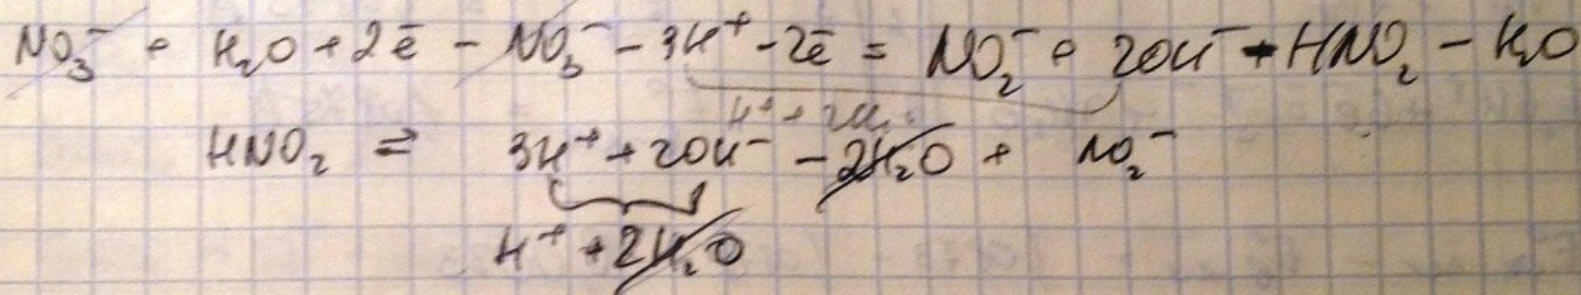 NO₃⁻ + H₂O + 2ē - NO₃⁻ - 3H⁺ - 2ē = NO₂⁻ + 2OH⁻ + HNO₂ - H₂O
H⁺ + 2H₂O
HNO₂ ⇌ 3H⁺ + 2OH⁻ - 2H₂O + NO₂⁻
H⁺ + 2H₂O